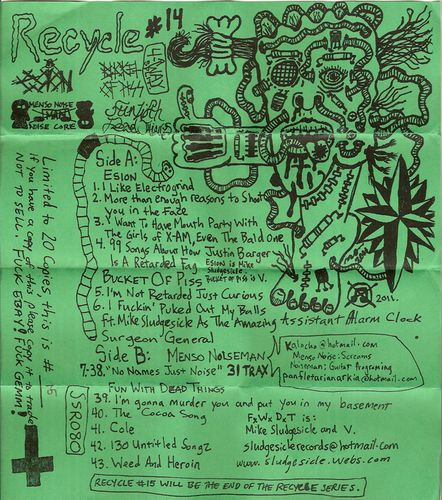 Recycle #14
MENSO NOISE
NOISE CORE
Side A:
ESION
1. I Like Electrogrind
2. More than enough reasons to Shoot
you in the Face
3. I Want To Have Mouth Party With
The Girls of X-AM, Even The Bald One
4. 99 Songs About How Justin Barger
Is A Retarded Fag
Esion is Mike
Sludgesicle.
Bucket of Piss is V.
BUCKET OF PISS
5. I'm Not Retarded Just Curious
6. I Fuckin' Puked Out My Balls
ft. Mike Sludgesicle As The Amazing Assistant Alarm Clock
Surgeon General
2011.
Side B: MENSO NOISEMAN
7-38. "No Names Just Noise" 31 TRAX
Kalocho@hotmail.com
Menso Noise: Screams
Noiseman: Guitar Programing
panfletarianarkia@hotmail.com
FUN WITH DEAD THINGS
39. I'm gonna murder you and put you in my basement
40. The "Cocoa Song
41. Cole
42. 130 Untitled Songz
43. Weed And Heroin
FxWxDxT is:
Mike Sludgesicle and V.
sludgesiclerecords@hotmail.com
www.sludgesicle.webs.com
RECYCLE #15 WILL BE THE END OF THE RECYCLE SERIES.
Limited to 20 Copies, this is #
if you have a copy of this please copy it to trade
NOT TO SELL, FUCK EBAY! FUCK GEMM!
SSR080